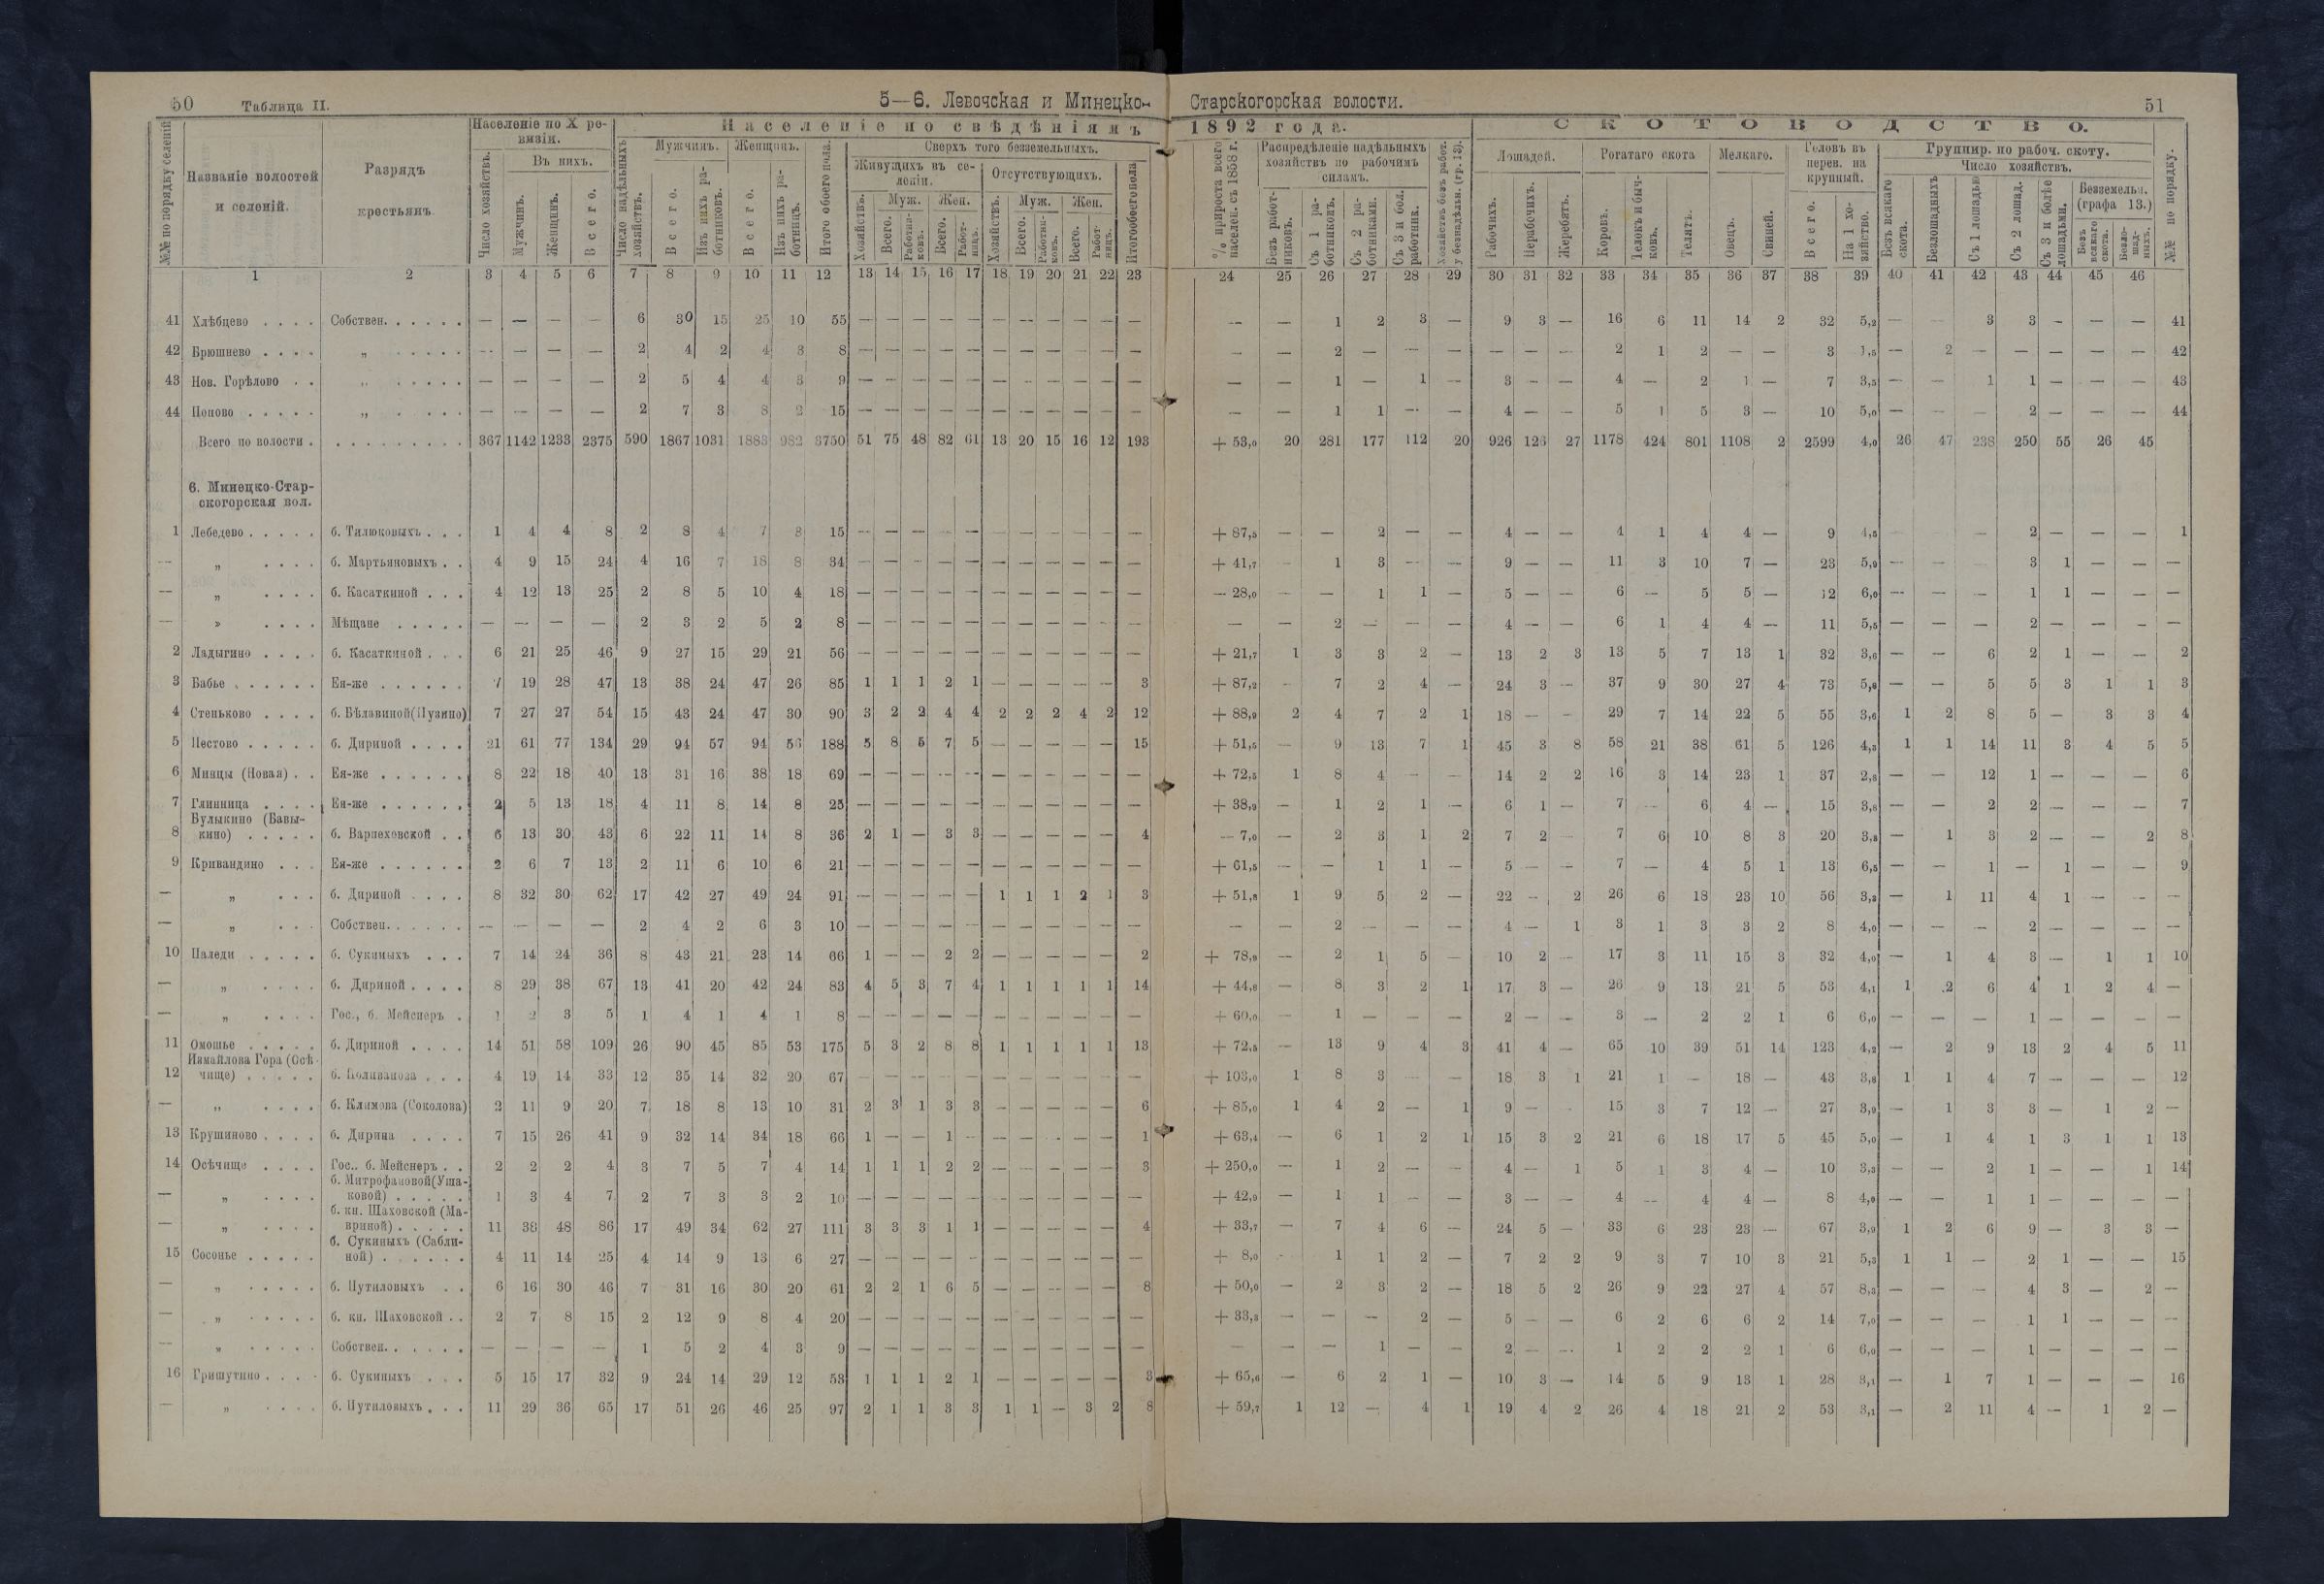 50 Таблица II. 5—6. Левочская и Минецко- Старскогорская волости. 51
№№ по порядку селеній
Названіе волостей и селеній.
Разрядъ крестьянъ.
Населеніе по X ревизіи.
Число хозяйствъ.
Въ нихъ.
Мужчинъ.
Женщинъ.
Всего.
Населеніе по свѣдѣніямъ 1892 года.
Число надѣльныхъ хозяйствъ.
Мужчинъ. Женщинъ.
Всего. Изъ нихъ работниковъ. Всего. Изъ нихъ работницъ. Итого обоего пола.
Сверхъ того безземельныхъ.
Живущихъ въ селеніи. Отсутствующихъ.
Хозяйствъ. Муж. Жен. Хозяйствъ. Муж. Жен.
Всего. Работниковъ. Всего. Работницъ. Всего. Работниковъ. Всего. Работницъ. Итого обоего пола
% прироста всего населен. съ 1858 г.
Распредѣленіе надѣльныхъ хозяйствъ по рабочимъ силамъ.
Безъ работниковъ. Съ 1 работникомъ. Съ 2 работниками. Съ 3 и бол. работник.
Хозяйствъ безъ работ. у безнадѣльн. (гр. 13).
СКОТОВОДСТВО.
Лошадей. Рогатаго скота Мелкаго. Головъ въ перев. на крупный.
Рабочихъ. Нерабочихъ. Жеребятъ. Коровъ. Телокъ и бычковъ. Телятъ. Овецъ. Свиней. Всего. На 1 хозяйство.
Группир. по рабоч. скоту.
Число хозяйствъ.
Безъ всякаго скота. Безлошадныхъ Съ 1 лошадью Съ 2 лошад. Съ 3 и болѣе лошадьми.
Безземельн. (графа 13.)
Безъ всякаго скота. Безлошадныхъ.
№№ по порядку.
1 2 3 4 5 6 7 8 9 10 11 12 13 14 15 16 17 18 19 20 21 22 23 24 25 26 27 28 29 30 31 32 33 34 35 36 37 38 39 40 41 42 43 44 45 46
41 Хлѣбцево . . . . Собствен. . . . . . — — — — 6 30 15 25 10 55 — — — — — — — — — — — — — 1 2 3 — 9 3 — 16 6 11 14 2 32 5,2 — — 3 3 — — — 41
42 Брюшнево . . . . „ . . . . . — — — — 2 4 2 4 3 8 — — — — — — — — — — — — — 2 — — — — — — 2 1 2 — — 3 1,5 — 2 — — — — — 42
43 Нов. Горѣлово . . „ . . . . . — — — — 2 5 4 4 3 9 — — — — — — — — — — — — — 1 — 1 — 3 — — 4 — 2 1 — 7 3,5 — — 1 1 — — — 43
44 Попово . . . . . „ . . . . — — — — 2 7 3 8 2 15 — — — — — — — — — — — — — 1 1 — — 4 — — 5 1 5 3 — 10 5,0 — — — 2 — — — 44
Всего по волости . . . . . . . . . . . 367 1142 1233 2375 590 1867 1031 1883 982 3750 51 75 48 82 61 13 20 15 16 12 193 + 53,0 20 281 177 112 20 926 123 27 1178 424 801 1108 2 2599 4,0 26 47 238 250 55 26 45
6. Минецко-Старскогорская вол.
1 Лебедево . . . . . б. Тилюковыхъ . . . 1 4 4 8 2 8 4 7 8 15 — — — — — — — — — — — + 87,5 — — 2 — — 4 — — 4 1 4 4 — 9 4,5 — — — 2 — — — 1
— „ . . . . б. Мартьяновыхъ . . 4 9 15 24 4 16 7 18 8 34 — — — — — — — — — — — + 41,7 — 1 3 — — 9 — — 11 3 10 7 — 23 5,9 — — — 3 1 — — —
— „ . . . . б. Касаткиной . . . 4 12 13 25 2 8 5 10 4 18 — — — — — — — — — — — — 28,0 — — 1 1 — 5 — — 6 — 5 5 — 12 6,0 — — — 1 1 — — —
— » . . . . Мѣщане . . . . . — — — — 2 3 2 5 2 8 — — — — — — — — — — — — — 2 — — — 4 — — 6 1 4 4 — 11 5,5 — — — 2 — — — —
2 Ладыгино . . . . б. Касаткиной . . . 6 21 25 46 9 27 15 29 21 56 — — — — — — — — — — — + 21,7 1 3 3 2 — 13 2 3 13 5 7 13 1 32 3,6 — — 6 2 1 — — 2
3 Бабье . . . . . . Ея-же . . . . . . 7 19 28 47 13 38 24 47 26 85 1 1 1 2 1 — — — — — 3 + 87,2 — 7 2 4 — 24 3 — 37 9 30 27 4 73 5,6 — — 5 5 3 1 1 3
4 Стеньково . . . . б. Бѣлавиной (Пузино) 7 27 27 54 15 43 24 47 30 90 3 2 2 4 4 2 2 2 4 2 12 + 88,9 2 4 7 2 1 18 — — 29 7 14 22 5 55 3,6 1 2 8 5 — 3 3 4
5 Пестово . . . . . б. Дириной . . . . 21 61 77 134 29 94 57 94 56 188 5 8 5 7 5 — — — — — 15 + 51,5 — 9 13 7 1 45 3 8 58 21 38 61 5 126 4,3 1 1 14 11 3 4 5 5
6 Минцы (Новая) . . Ея-же . . . . . . 8 22 18 40 13 31 16 38 18 69 — — — — — — — — — — — + 72,5 1 8 4 — — 14 2 2 16 3 14 23 1 37 2,8 — — 12 1 — — — 6
7 Глинница . . . . Ея-же . . . . . . 2 5 13 18 4 11 8 14 8 25 — — — — — — — — — — — + 38,9 — 1 2 1 — 6 1 — 7 — 6 4 — 15 3,8 — — 2 2 — — — 7
8 Булыкино (Бавыкино) . . . . . б. Варпеховской . . 6 13 30 43 6 22 11 14 8 36 2 1 — 3 3 — — — — — 4 — 7,0 — 2 3 1 2 7 2 — 7 6 10 8 3 20 3,3 — 1 3 2 — — 2 8
9 Кривандино . . . Ея-же . . . . . . 2 6 7 13 2 11 6 10 6 21 — — — — — — — — — — — + 61,5 — — 1 1 — 5 — — 7 — 4 5 1 13 6,5 — — 1 — 1 — — 9
— „ . . . б. Дириной . . . . 8 32 30 62 17 42 27 49 24 91 — — — — — 1 1 1 2 1 3 + 51,8 1 9 5 2 — 22 — 2 26 6 18 23 10 56 3,3 — 1 11 4 1 — — —
— „ . . . Собствен. . . . . . — — — — 2 4 2 6 3 10 — — — — — — — — — — — — — 2 — — — 4 — 1 3 1 3 3 2 8 4,0 — — — 2 — — — —
10 Паледи . . . . . б. Сукиныхъ . . . 7 14 24 36 8 43 21 23 14 66 1 — — 2 2 — — — — — 2 + 78,9 — 2 1 5 — 10 2 — 17 3 11 15 3 32 4,0 — 1 4 3 — 1 1 10
— „ . . . . б. Дириной . . . . 8 29 38 67 13 41 20 42 24 83 4 5 3 7 4 1 1 1 1 1 14 + 44,8 — 8 3 2 1 17 3 — 26 9 13 21 5 53 4,1 1 2 6 4 1 2 4 —
— „ . . . . Гос., б. Мейснеръ . 1 2 3 5 1 4 1 4 1 8 — — — — — — — — — — — + 60,0 — 1 — — — 2 — — 3 — 2 2 1 6 6,0 — — — 1 — — — —
11 Омошье . . . . . б. Дириной . . . . 14 51 58 109 26 90 45 85 53 175 5 3 2 8 8 1 1 1 1 1 13 + 72,5 — 13 9 4 3 41 4 — 65 10 39 51 14 123 4,2 — 2 9 13 2 4 5 11
12 Измайлова Гора (Осѣчище) . . . . . б. Поливанова . . . 4 19 14 33 12 35 14 32 20 67 — — — — — — — — — — — + 103,0 1 8 3 — — 18 3 1 21 1 — 18 — 43 3,6 1 1 4 7 — — — 12
— „ . . . . б. Климова (Соколова) 2 11 9 20 7 18 8 13 10 31 2 3 1 3 3 — — — — — 6 + 85,0 1 4 2 — 1 9 — — 15 3 7 12 — 27 3,9 — 1 3 3 — 1 2 —
13 Крушиново . . . . б. Дирина . . . . 7 15 26 41 9 32 14 34 18 66 1 — — 1 — — — — — — 1 + 63,4 — 6 1 2 1 15 3 2 21 6 18 17 5 45 5,0 — 1 4 1 3 1 1 13
14 Осѣчище . . . . Гос.. б. Мейснеръ . . 2 2 2 4 3 7 5 7 4 14 1 1 1 2 2 — — — — — 3 + 250,0 — 1 2 — — 4 — 1 5 1 3 4 — 10 3,3 — — 2 1 — — 1 14
— „ . . . . б. Митрофановой (Ушаковой) . . . . . 1 3 4 7 2 7 3 3 2 10 — — — — — — — — — — — + 42,9 — 1 1 — — 3 — — 4 — 4 4 — 8 4,0 — — 1 1 — — — —
— „ . . . . б. кн. Шаховской (Мавриной) . . . . . 11 38 48 86 17 49 34 62 27 111 3 3 3 1 1 — — — — — 4 + 33,7 — 7 4 6 — 24 5 — 33 6 23 23 — 67 3,9 1 2 6 9 — 3 3 —
15 Сосонье . . . . . б. Сукиныхъ (Саблиной) . . . . . . 4 11 14 25 4 14 9 13 6 27 — — — — — — — — — — — + 8,0 — 1 1 2 — 7 2 2 9 3 7 10 3 21 5,3 1 1 — 2 1 — — 15
— „ . . . . . б. Путиловыхъ . . 6 16 30 46 7 31 16 30 20 61 2 2 1 6 5 — — — — — 8 + 50,0 — 2 3 2 — 18 5 2 26 9 22 27 4 57 8,3 — — — 4 3 — 2 —
— „ . . . . . б. кн. Шаховской . . 2 7 8 15 2 12 9 8 4 20 — — — — — — — — — — — + 33,3 — — — 2 — 5 — — 6 2 6 6 2 14 7,0 — — — 1 1 — — —
— „ . . . . . Собствен. . . . . . — — — — 1 5 2 4 3 9 — — — — — — — — — — — — — — 1 — — 2 — — 1 2 2 2 1 6 6,0 — — — 1 — — — —
16 Гришутино . . . . б. Сукиныхъ . . . 5 15 17 32 9 24 14 29 12 53 1 1 1 2 1 — — — — — 3 + 65,6 — 6 2 1 — 10 3 — 14 5 9 13 1 28 3,1 — 1 7 1 — — — 16
— „ . . . . б. Путиловыхъ . . . 11 29 36 65 17 51 26 46 25 97 2 1 1 3 3 1 1 — 3 2 8 + 59,7 1 12 — 4 1 19 4 2 26 4 18 21 2 53 3,1 — 2 11 4 — 1 2 —